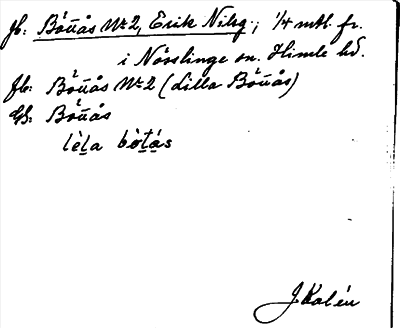 Jb: Böttås Nr 2, Erik Nilsg.; 1/4 mtl. fr.
i Nösslinge sn. Himle hd.
Jb: Böttås Nr 2 (Lilla Böttås)
Gk: Böttås
lèḷa bòṯás
J. Kalén